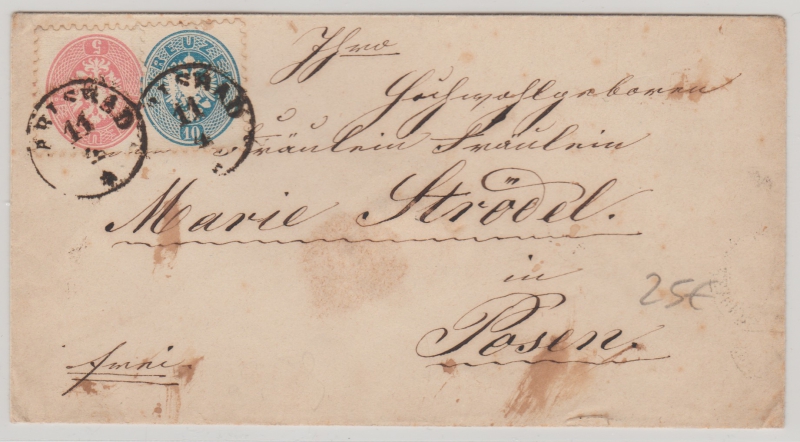 5
KREUZER
10
ARLSBAD
11
ARLSBAD
11
Ihro
Hochwohlgeboren
Fräulein Fräulein
Marie Strödel.
in
Posen.
frei
25€